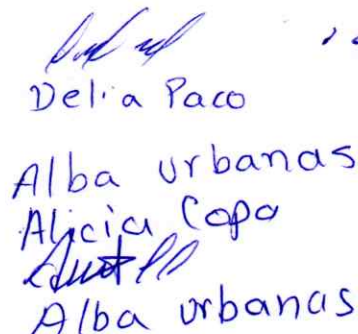 Delia Paco
Alba urbanas
Alicia Copa
Alba urbanas